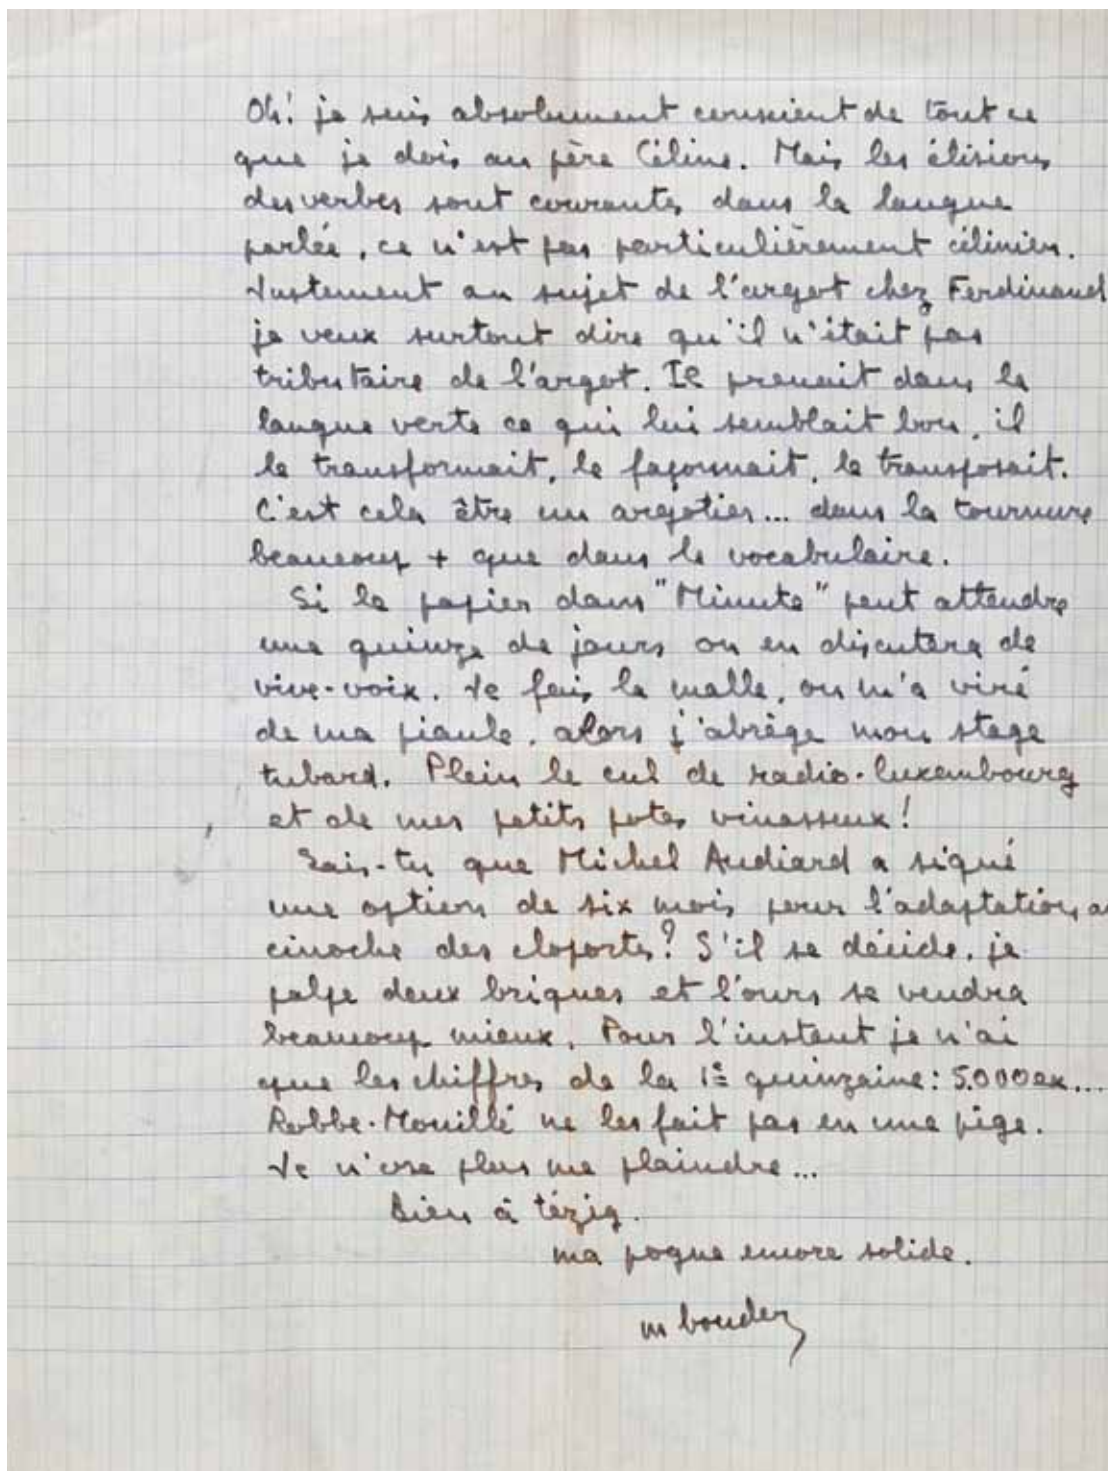 Oh! je suis absolument conscient de tout ce
que je dois au père Céline. Mais les élisions
des verbes sont courantes dans la langue
parlée, ce n'est pas particulièrement célinien.
Justement au sujet de l'argot chez Ferdinand
je veux surtout dire qu'il n'était pas
tributaire de l'argot. Il prenait dans la
langue verte ce qui lui semblait bon, il
le transformait, le façonnait, le transposait.
C'est cela être un argotier... dans la tournure
beaucoup + que dans le vocabulaire.
Si le papier dans "Minute" peut attendre
une quinze de jours on en discutera de
vive-voix. Je fais la malle, on m'a viré
de ma piaule, alors j'abrège mon stage
tubard. Plein le cul de radio-luxembourg
et de mes petits potes vinasseux!
Sais-tu que Michel Audiard a signé
une option de six mois pour l'adaptation au
cinoche des cloportes? S'il se décide, je
palpe deux briques et l'ours se vendra
beaucoup mieux. Pour l'instant je n'ai
que les chiffres de la 1e quinzaine: 5.000 ex....
Robbe-Mouillé ne les fait pas en une pige.
Je n'ose plus me plaindre...
Bien à tézig.
ma pogne encore solide.
m boudar